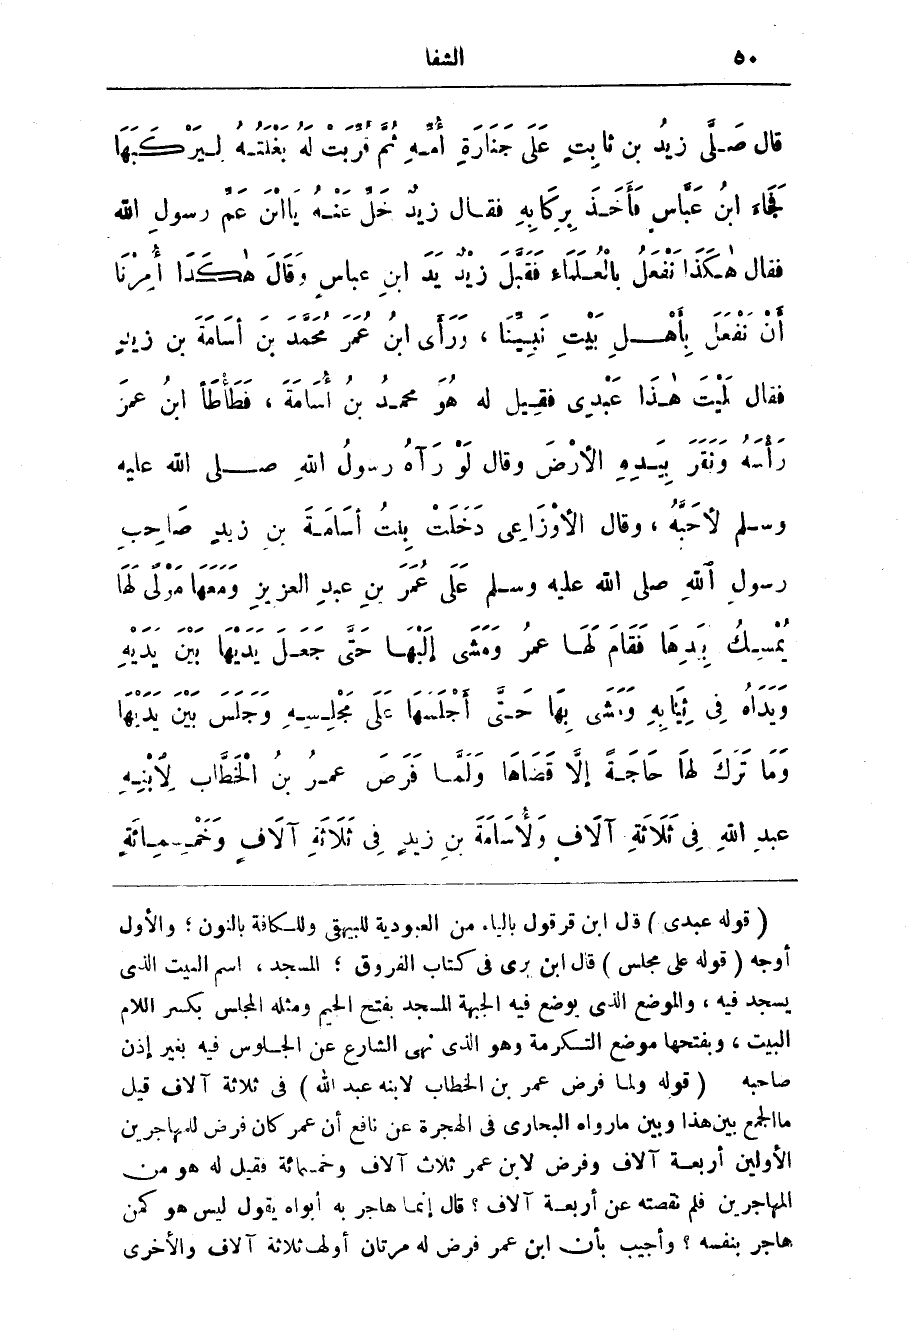 ٥٠ الشفا
قال صَلَّى زيدُ بن ثابِتٍ عَلَى جَنَازَةِ أُمِّهِ ثُمَّ قُرِّبَتْ لَهُ بَغْلَتُهُ لِيَرْكَبَهَا
فَجَاءَ ابنُ عَبَّاسٍ فَأَخَذَ بِرِكَابِهِ فقال زيدٌ خَلِّ عَنْهُ يَاابْنَ عَمِّ رسولِ الله
فقال هٰكَذَا نَفْعَلُ بِالْعُلَمَاءِ فَقَبَّلَ زَيْدٌ يَدَ ابنِ عباسٍ وَقَالَ هٰكَذَا أُمِرْنَا
أَنْ نَفْعَلَ بِأَهْلِ بَيْتِ نَبِيِّنَا ، وَرَأَى ابنُ عُمَرَ مُحَمَّدَ بنَ أُسَامَةَ بن زيدٍ
فقال لَيْتَ هٰذَا عَبْدِى فقيل له هُوَ محمدُ بنُ أُسَامَةَ ، فَطَأْطَأَ ابنُ عمرَ
رَأْسَهُ وَنَقَرَ بِيَدِهِ الأَرْضَ وقال لَوْ رَآهُ رسولُ اللهِ صلى الله عليه
وسلم لَأَحَبَّهُ ، وقال الأَوْزَاعِى دَخَلَتْ بِنْتُ أُسَامَةَ بنِ زيدٍ صَاحِبِ
رسولِ اللهِ صلى الله عليه وسلم عَلَى عُمَرَ بنِ عبدِ العزيزِ وَمَعَهَا مَوْلًى لَهَا
يُمْسِكُ بِيَدِهَا فَقَامَ لَهَا عمرُ وَمَشَى إِلَيْهَا حَتَّى جَعَلَ يَدَيْهَا بَيْنَ يَدَيْهِ
وَيَدَاهُ فِى ثِيَابِهِ وَمَشَى بِهَا حَتَّى أَجْلَسَهَا عَلَى مَجْلِسِهِ وَجَلَسَ بَيْنَ يَدَيْهَا
وَمَا تَرَكَ لَهَا حَاجَةً إِلَّا قَضَاهَا وَلَمَّا فَرَضَ عمرُ بنُ الْخَطَّابِ لِابْنِهِ
عبدِ اللهِ فِى ثَلَاثَةِ آلَافٍ وَلِأُسَامَةَ بنِ زيدٍ فِى ثَلَاثَةِ آلَافٍ وَخَمْسِمِائَةٍ
( قوله عبدى ) قال ابن قرقول بالياء من العبودية للبيهقى وللكافة بالنون ؛ والأول
أوجه ( قوله على مجلس ) قال ابن برى فى كتاب الفروق ؛ المسجد ، اسم البيت الذى
يسجد فيه ، والموضع الذى يوضع فيه الجبهة المسجد بفتح الجيم ومثله المجلس بكسر اللام
البيت ، وبفتحها موضع التكرمة وهو الذى نهى الشارع عن الجلوس فيه بغير إذن
صاحبه ( قوله ولما فرض عمر بن الخطاب لابنه عبد الله ) فى ثلاثة آلاف قيل
ماالجمع بين هذا وبين مارواه البخارى فى الهجرة عن نافع أن عمر كان فرض للمهاجرين
الأولين أربعة آلاف وفرض لابن عمر ثلاث آلاف وخمسمائة فقيل له هو من
المهاجرين فلم نقصته عن أربعة آلاف ؟ قال إنما هاجر به أبواه يقول ليس هو كمن
هاجر بنفسه ؟ وأجيب بأن ابن عمر فرض له مرتان أولهـ ثلاثة آلاف والأخرى